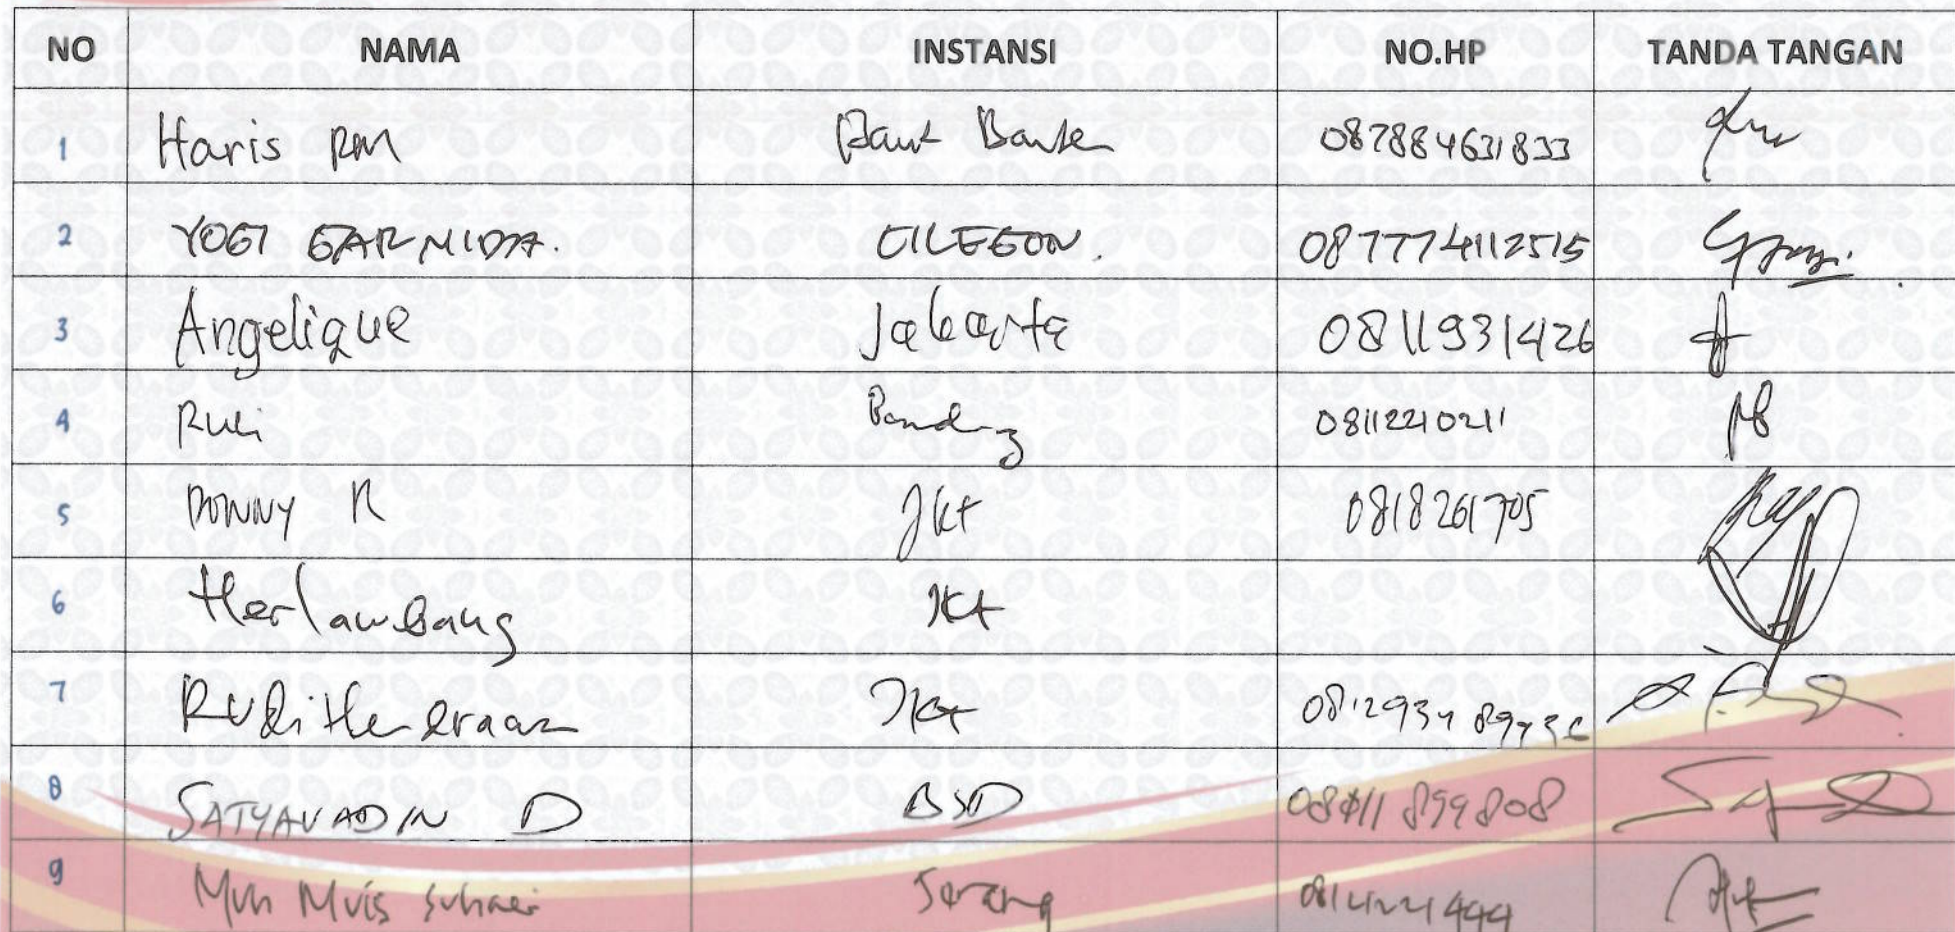 NO NAMA INSTANSI NO.HP TANDA TANGAN
1 Haris RM 087884631833
2 YOGI GARNIDA. CILEGON. 087774112515
3 Angelique Jakarta 0811931426
4 Ruli Bandung 08112210211
5 DONNY R Jkt 0818261705
6 Herlambang Jkt
7 Rudi Hendrawan Jkt
8 SATYAVADIN D BSD
9 Muh Muis Suhaeri Serang